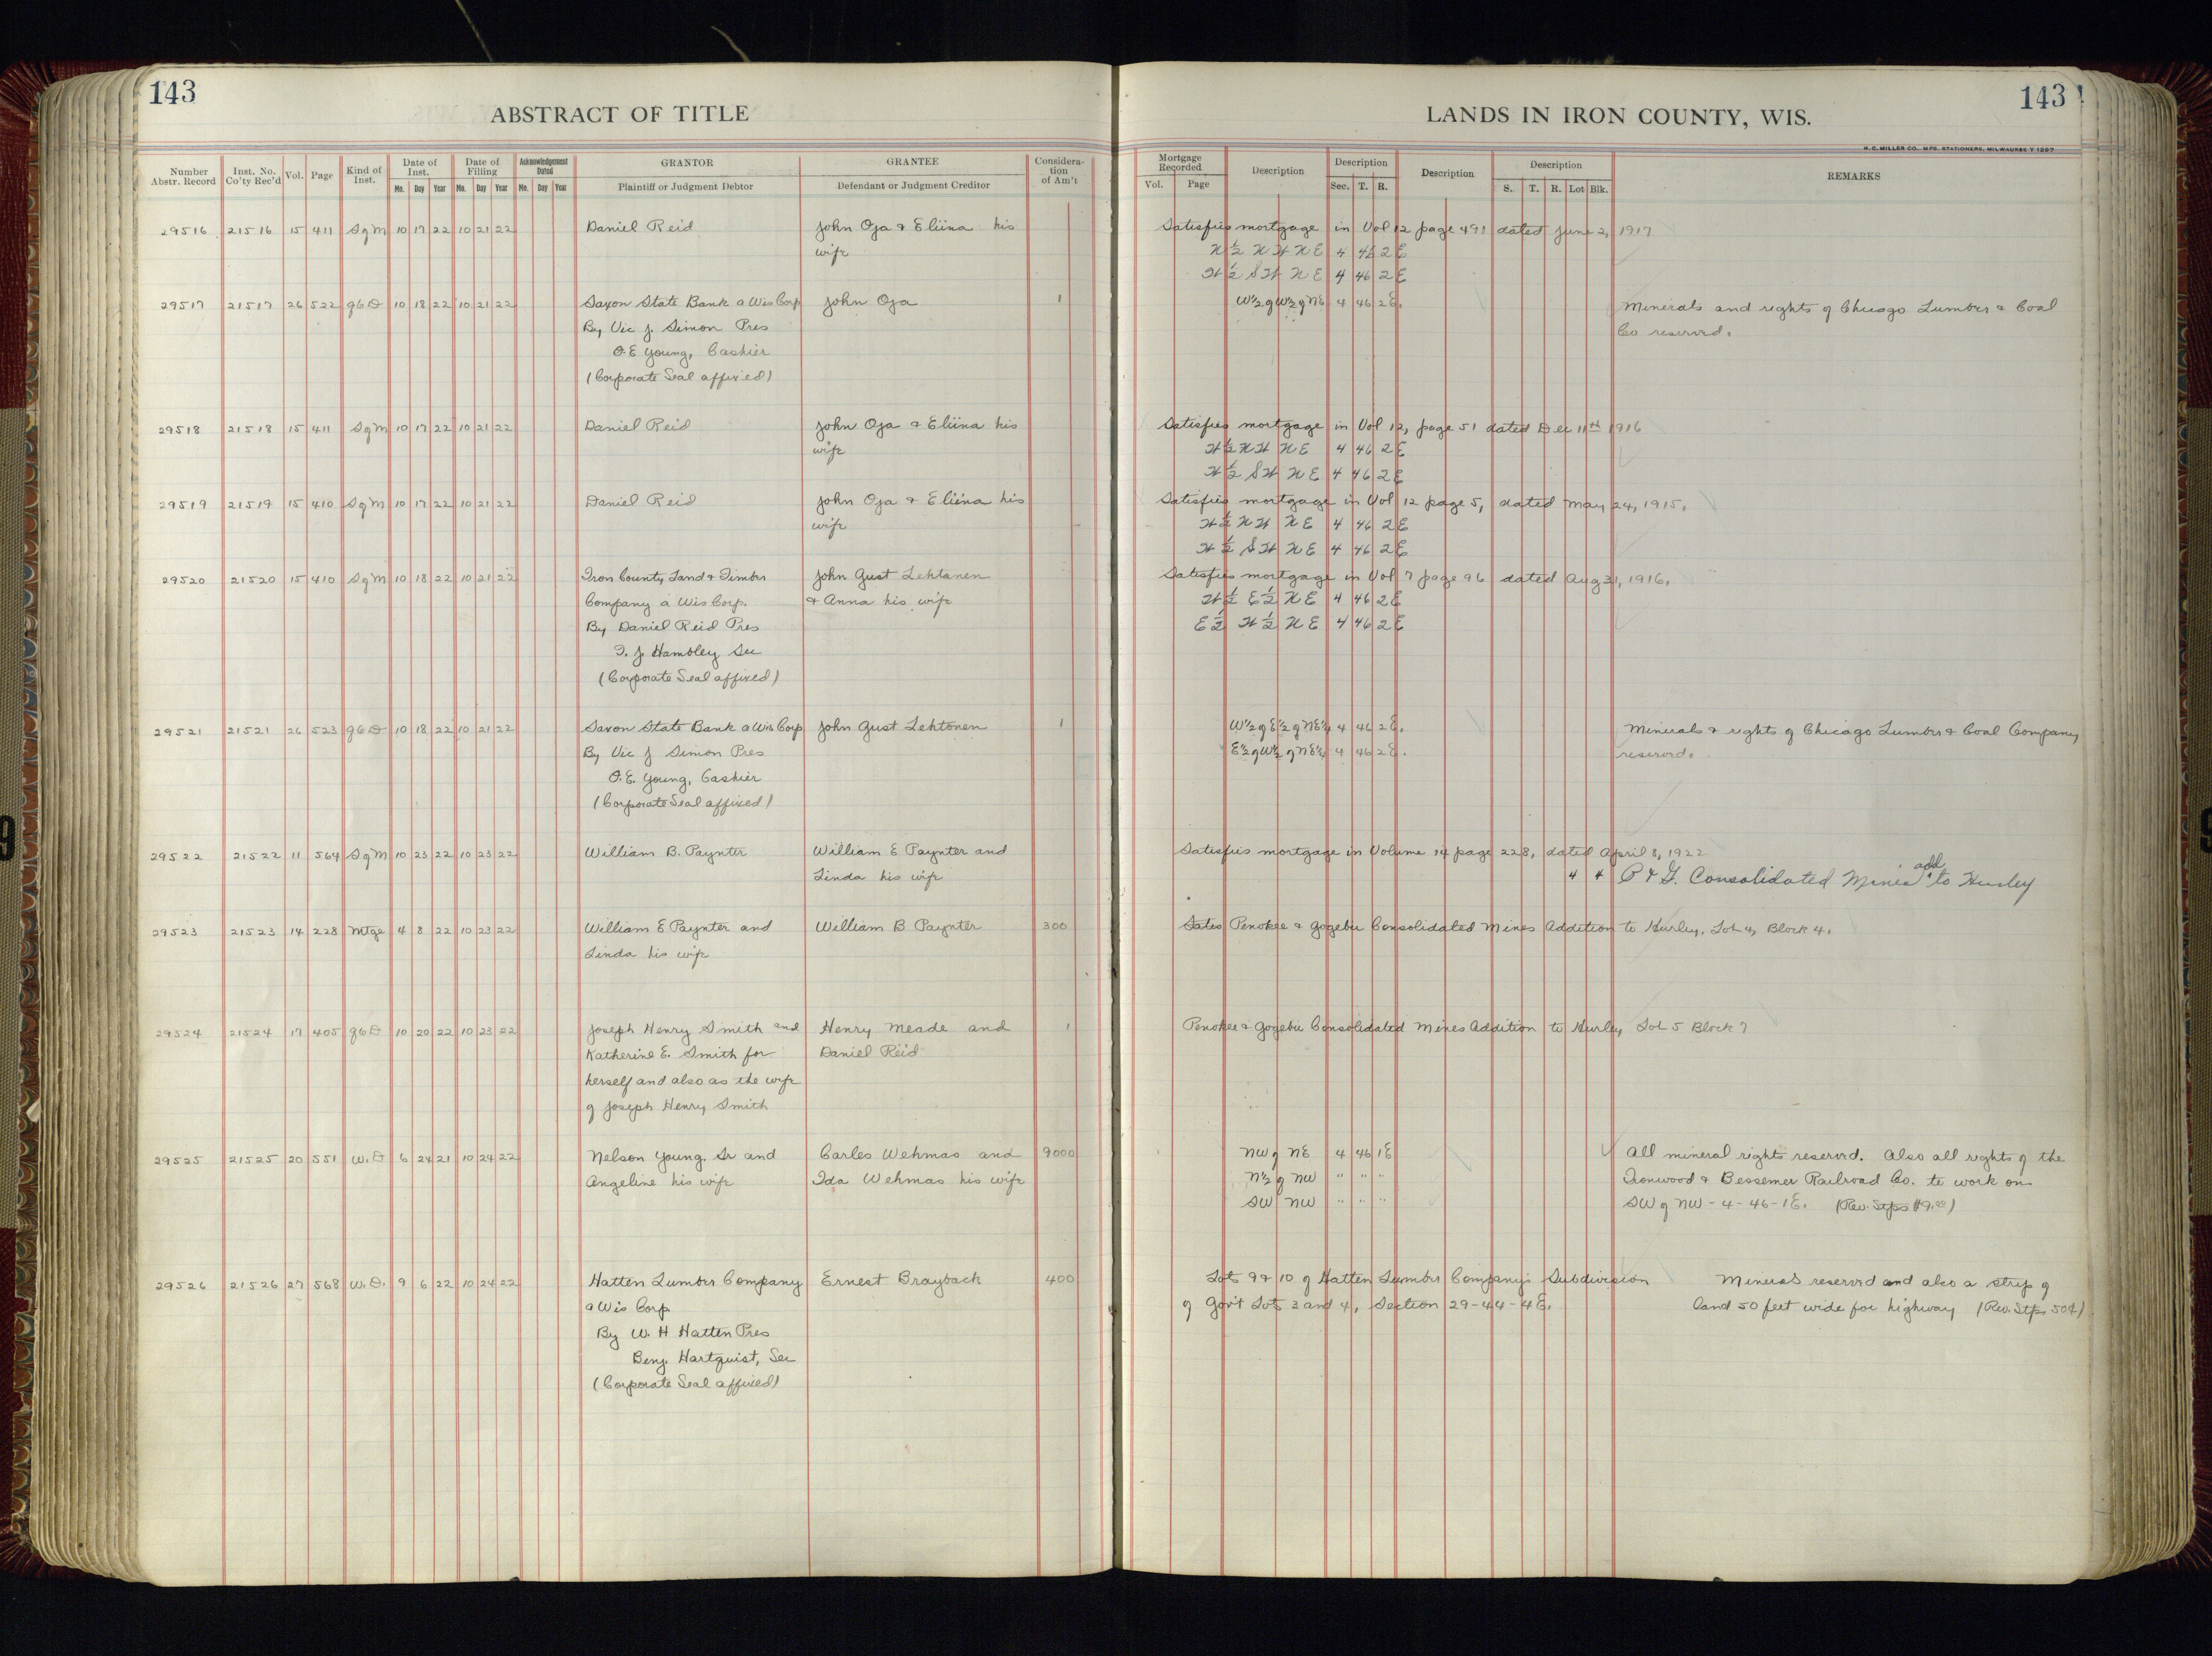 143
ABSTRACT OF TITLE
Number Abstr. Record
Inst. No. Co'ty Rec'd
Vol.
Page
Kind of Inst.
Date of Inst.
Mo. Day Year
Date of Filling
Mo. Day Year
Acknowledgement Dated
Mo. Day Year
GRANTOR
Plaintiff or Judgment Debtor
GRANTEE
Defendant or Judgment Creditor
Considera-tion of Am't
29516 21516 15 411 S of M 10 17 22 10 21 22 Daniel Reid John Oja & Eliina his
wife
29517 21517 26 522 QCD 10 18 22 10 21 22 Saxon State Bank a Wis Corp John Oja 1
By Vic J. Simon Pres
O.E Young, Cashier
(Corporate Seal affixed)
29518 21518 15 411 S of M 10 17 22 10 21 22 Daniel Reid John Oja & Eliina his
wife
29519 21519 15 410 S of M 10 17 22 10 21 22 Daniel Reid John Oja & Eliina his
wife
29520 21520 15 410 S of M 10 18 22 10 21 22 Iron County Land & Timber John Gust Lehtanen
Company a Wis Corp. & Anna his wife
By Daniel Reid Pres
T. J. Hambley Sec
(Corporate Seal affixed)
29521 21521 26 523 QCD 10 18 22 10 21 22 Saxon State Bank a Wis Corp John Gust Lehtonen 1
By Vic J Simon Pres
O.E. Young, Cashier
(Corporate Seal affixed)
29522 21522 11 564 S of M 10 23 22 10 23 22 William B. Paynter William E Paynter and
Linda his wife
29523 21523 14 228 Mtge 4 8 22 10 23 22 William E Paynter and William B Paynter 300
Linda his wife
29524 21524 17 405 QCD 10 20 22 10 23 22 Joseph Henry Smith and Henry Meade and 1
Katherine E. Smith for Daniel Reid
herself and also as the wife
of Joseph Henry Smith
29525 21525 20 551 W.D 6 24 21 10 24 22 Nelson Young Sr and Carles Wehmas and 9000
Angeline his wife Ida Wehmas his wife
29526 21526 27 568 W.D. 9 6 22 10 24 22 Hatten Lumber Company Ernest Brayback 400
a Wis Corp
By W. H Hatten Pres
Benj. Hartquist, Sec
(Corporate Seal affixed)
143
LANDS IN IRON COUNTY, WIS.
H. C. MILLER CO., MFG. STATIONERS, MILWAUKEE Y 1297
Mortgage Recorded
Vol. Page
Description
Description
Sec. T. R.
Description
Description
S. T. R. Lot Blk.
REMARKS
Satisfies mortgage in Vol 12 page 491 dated June 2, 1917
W ½ NW NE 4 46 2 E
W ½ SW NE 4 46 2 E
W½ of W½ of NE 4 46 2 E. Minerals and rights of Chicago Lumber & Coal
Co reserved.
Satisfies mortgage in Vol 12, page 51 dated Dec 11th 1916
W ½ NW NE 4 46 2 E
W ½ SW NE 4 46 2 E
Satisfies mortgage in Vol 12 page 5, dated May 24, 1915.
W ½ NW NE 4 46 2 E
W ½ SW NE 4 46 2 E
Satisfies mortgage in Vol 7 page 96 dated Aug 31, 1916.
W ½ E ½ NE 4 46 2 E
E ½ W ½ NE 4 46 2 E
W½ of E½ of NE¼ 4 46 2 E. Minerals & rights of Chicago Lumber & Coal Company
E½ of W½ of NE¼ 4 46 2 E. reserved.
Satisfies mortgage in Volume 14 page 228, dated April 8, 1922
4 4 P & G. Consolidated Mines add. to Hurley
States Penokee & Gogebic Consolidated Mines Addition to Hurley, Lot 4, Block 4.
Penokee & Gogebic Consolidated Mines Addition to Hurley Lot 5 Block 7
NW of NE 4 46 1E All mineral rights reserved. Also all rights of the
N½ of NW " " " Ironwood & Bessemer Railroad Co. to work on
SW NW " " " SW of NW - 4 - 46 - 1 E. (Rev. Stps $9.00)
Lots 9 & 10 of Hatten Lumber Company's Subdivision Minerals reserved and also a strip of
of Gov't Lots 3 and 4, Section 29-44-4E. land 50 feet wide for highway (Rev. Stps 50¢)